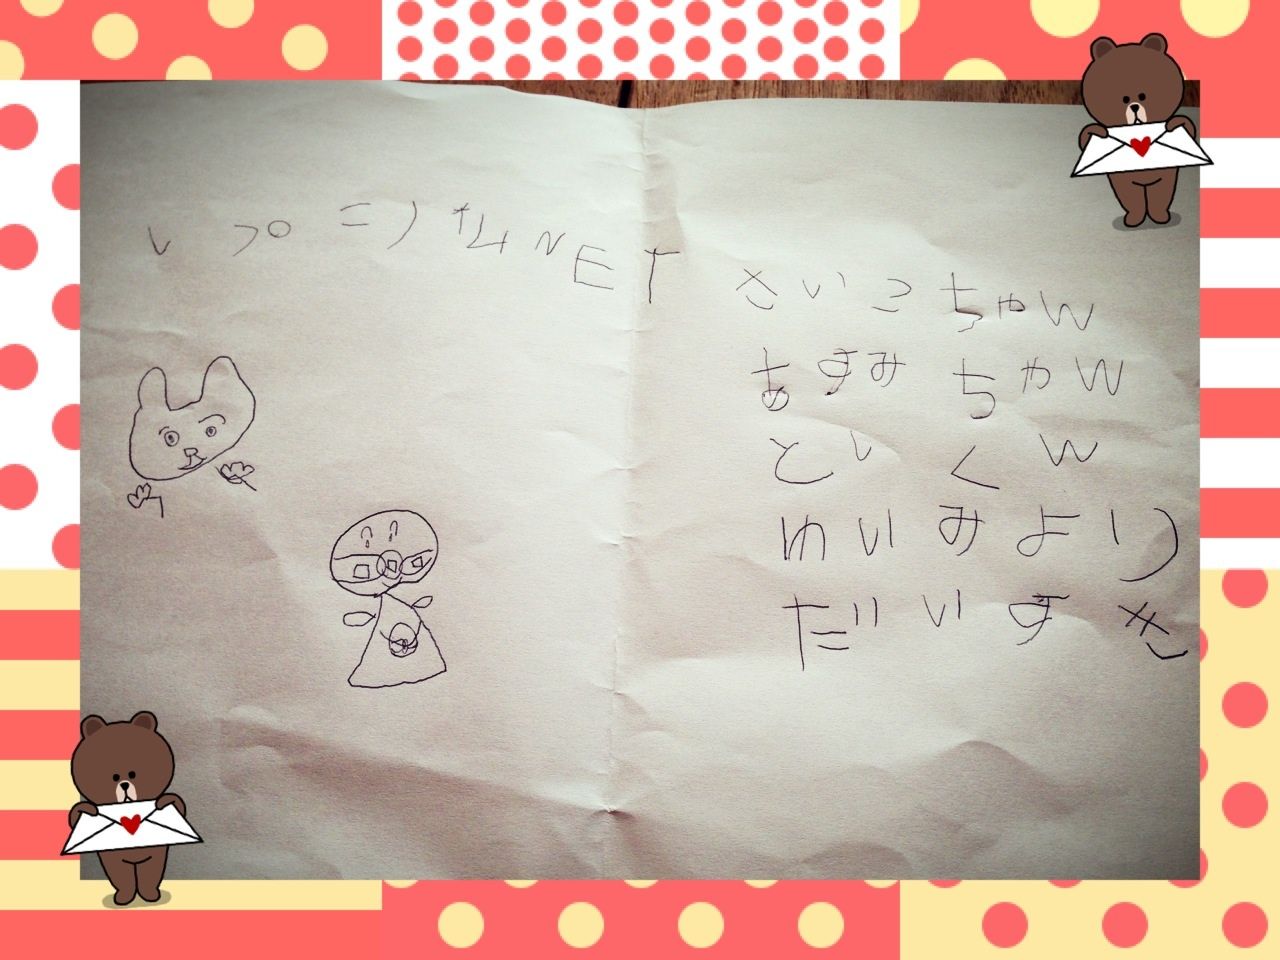 NET
さいこちゃん
あすみちゃん
といくん
ゆいみより
だいすき